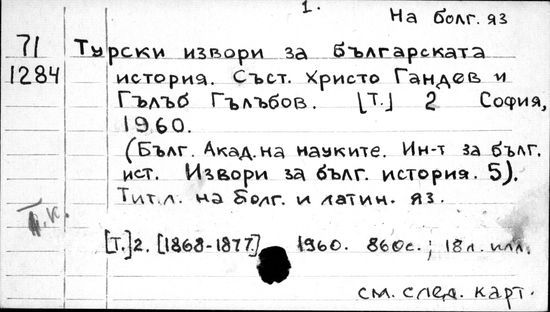 1. На болг. яз
71 Турски извори за българската
1284 история. Съст. Христо Гандев и
Гълъб Гълъбов. [Т.] 2 София,
1960.
(Бълг. Акад. на науките. Ин-т за бълг.
ист. Извори за бълг. история. 5).
Тит.л. на болг. и латин. яз.
[Т.]2. [1868-1877] 1960. 860с.; 18л. илл.
см. след. карт.